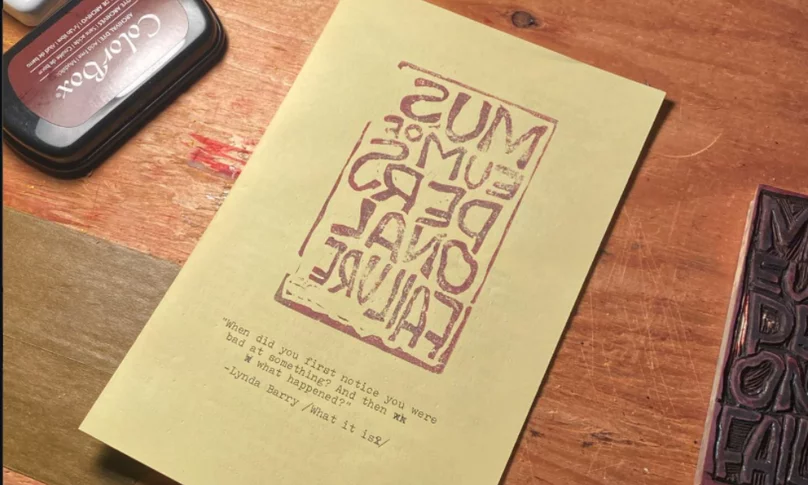 ColorBox®
MUS
EUM OF
PERS
ONAL
FAILURE
"When did you first notice you were
bad at something? And then
what happened?"
-Lynda Barry /What it is/
M
EU
P
ON
FAIL